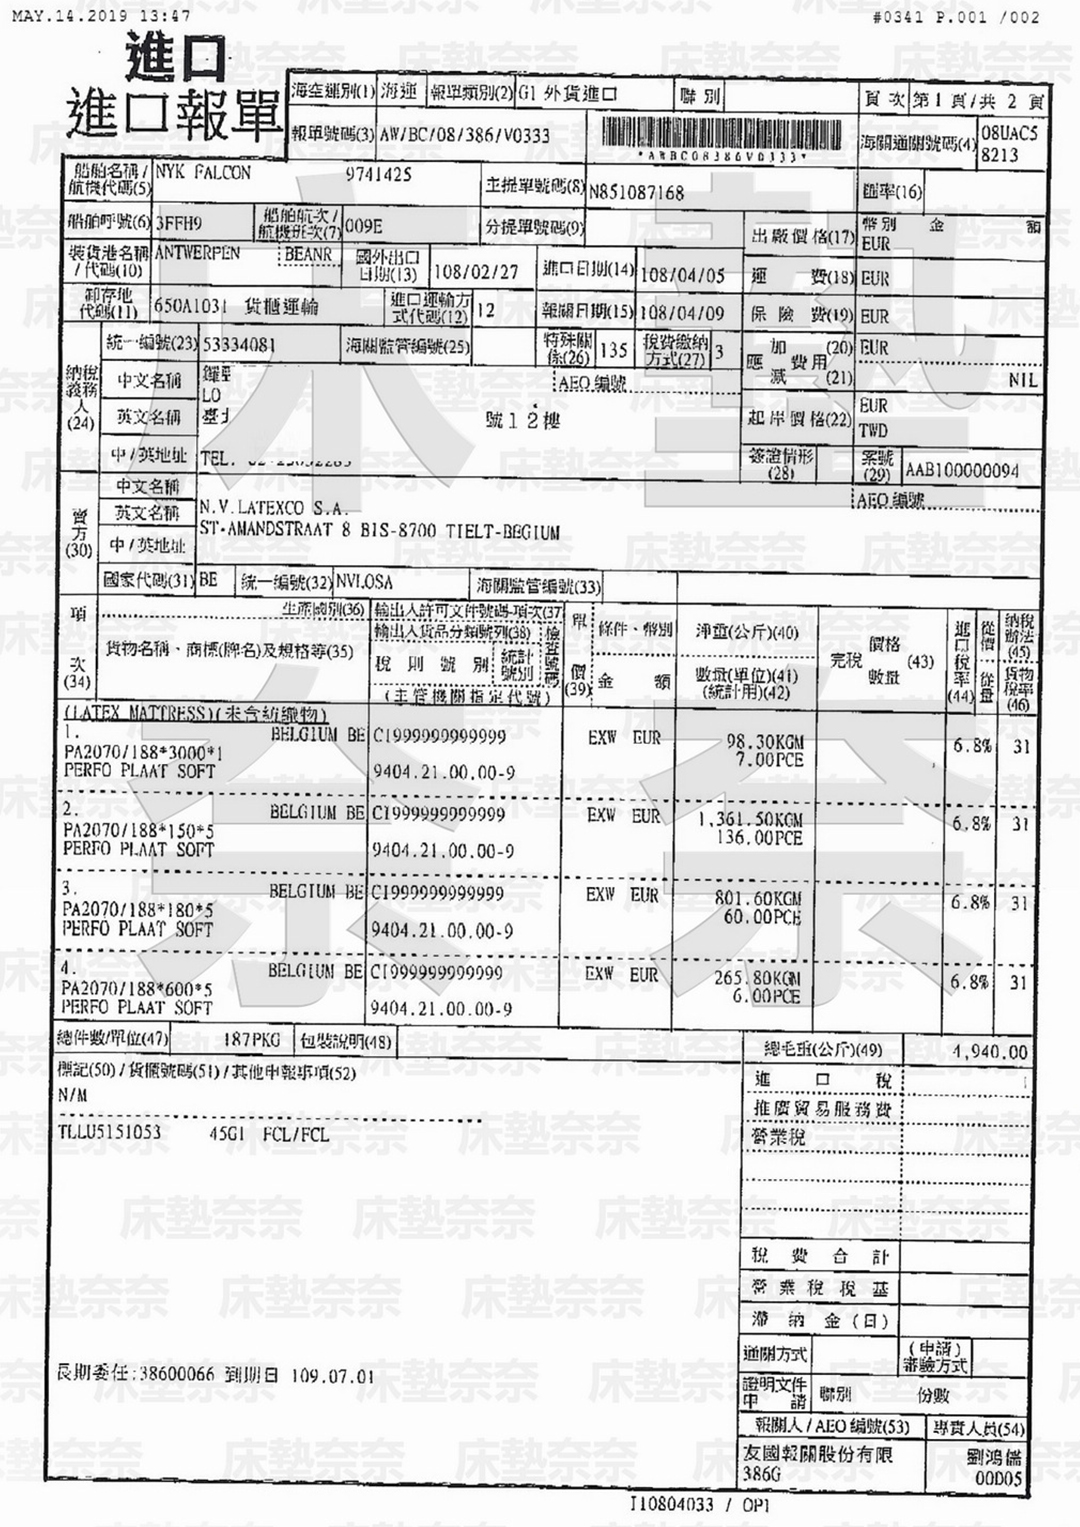 MAY.14.2019 13:47
#0341 P.001 /002
進口
進口報單
海空運別(1) 海運 報單類別(2) G1 外貨進口 聯別 頁次 第1頁/共2頁
報單號碼(3) AW/BC/08/386/V0333
*AWBC08386V0333*
海關通關號碼(4) 08UAC58213
船舶名稱/航機代碼(5) NYK FALCON 9741425
主提單號碼(8) N851087168
匯率(16)
船舶呼號(6) 3FFH9 船舶航次/航機班次(7) 009E
分提單號碼(9)
出廠價格(17) 幣別 金額
EUR
裝貨港名稱/代碼(10) ANTWERPEN BEANR
國外出口日期(13) 108/02/27
進口日期(14) 108/04/05
運費(18) EUR
卸存地代碼(11) 650A1031 貨櫃運輸
進口運輸方式代碼(12) 12
報關日期(15) 108/04/09
保險費(19) EUR
統一編號(23) 53334081 海關監管編號(25)
特殊關係(26) 135 稅費繳納方式(27) 3
應加減費用 (20) (21) EUR
NIL
納稅義務人(24)
中文名稱
LO
AEO編號
英文名稱 臺北 號12樓
起岸價格(22) EUR
TWD
中/英地址 TEL:
簽證情形(28) 案號(29) AAB100000094
賣方(30)
中文名稱
AEO編號
英文名稱 N.V.LATEXCO S.A.
中/英地址 ST-AMANDSTRAAT 8 BIS-8700 TIELT-BEGIUM
國家代碼(31) BE 統一編號(32) NVLOSA 海關監管編號(33)
項次(34)
生產國別(36)
貨物名稱、商標(牌名)及規格等(35)
輸出入許可文件號碼-項次(37)
輸出入貨品分類號列(38)
稅則號別 統計號別 檢查號碼
(主管機關指定代號)
單價(39) 條件、幣別 金額
淨重(公斤)(40)
數量(單位)(41)
(統計用)(42)
完稅 價格 數量 (43)
進口稅率(44) 從價 從量
納稅辦法(45)
貨物稅率(46)
(LATEX MATTRESS)(未含紡織物)
1. BELGIUM BE CI9999999999999 EXW EUR 98.30KGM 6.8% 31
PA2070/188*3000*1 7.00PCE
PERFO PLAAT SOFT 9404.21.00.00-9
2. BELGIUM BE CI9999999999999 EXW EUR 1,361.50KGM 6.8% 31
PA2070/188*150*5 136.00PCE
PERFO PLAAT SOFT 9404.21.00.00-9
3. BELGIUM BE CI9999999999999 EXW EUR 801.60KGM 6.8% 31
PA2070/188*180*5 60.00PCE
PERFO PLAAT SOFT 9404.21.00.00-9
4. BELGIUM BE CI9999999999999 EXW EUR 265.80KGM 6.8% 31
PA2070/188*600*5 6.00PCE
PERFO PLAAT SOFT 9404.21.00.00-9
總件數/單位(47) 187PKG 包裝說明(48)
總毛重(公斤)(49) 4,940.00
標記(50)/貨櫃號碼(51)/其他申報事項(52)
進口稅
N/M
推廣貿易服務費
TLLU5151053 45G1 FCL/FCL
營業稅
稅費合計
營業稅稅基
滯納金(日)
通關方式 (申請)審驗方式
長期委任:38600066 到期日 109.07.01
證明文件申請 聯別 份數
報關人/AEO編號(53) 專責人員(54)
友國報關股份有限 劉鴻儒
386G 00D05
I10804033 / OP1
床墊奈奈